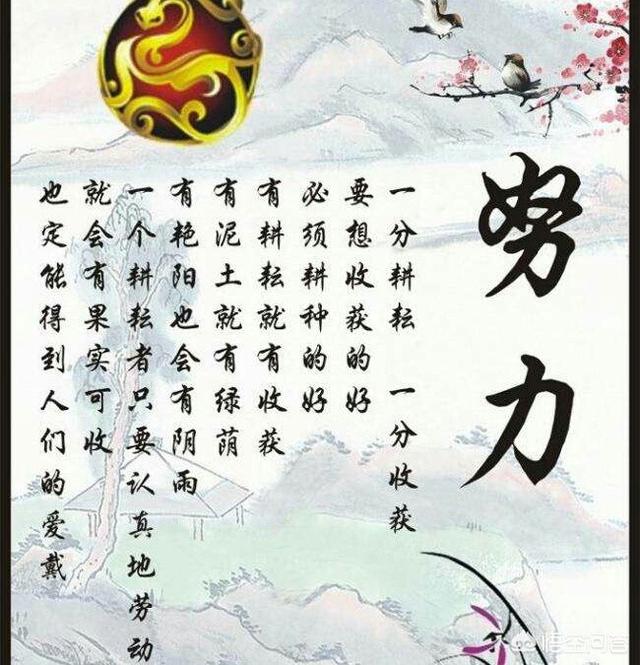 努力
一分耕耘 一分收获
要想收获的好
必须耕种的好
有耕耘就有收获
有泥土就有绿荫
有艳阳也会有阴雨
一个耕耘者只要认真地劳动
就会有果实可收
也定能得到人们的爱戴
悟空问答